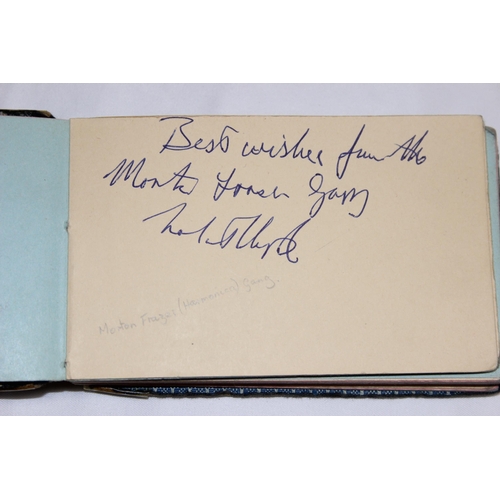 Best wishes from the
Morton Fraser Gang
Morton Frazer (Harmonica) Gang.